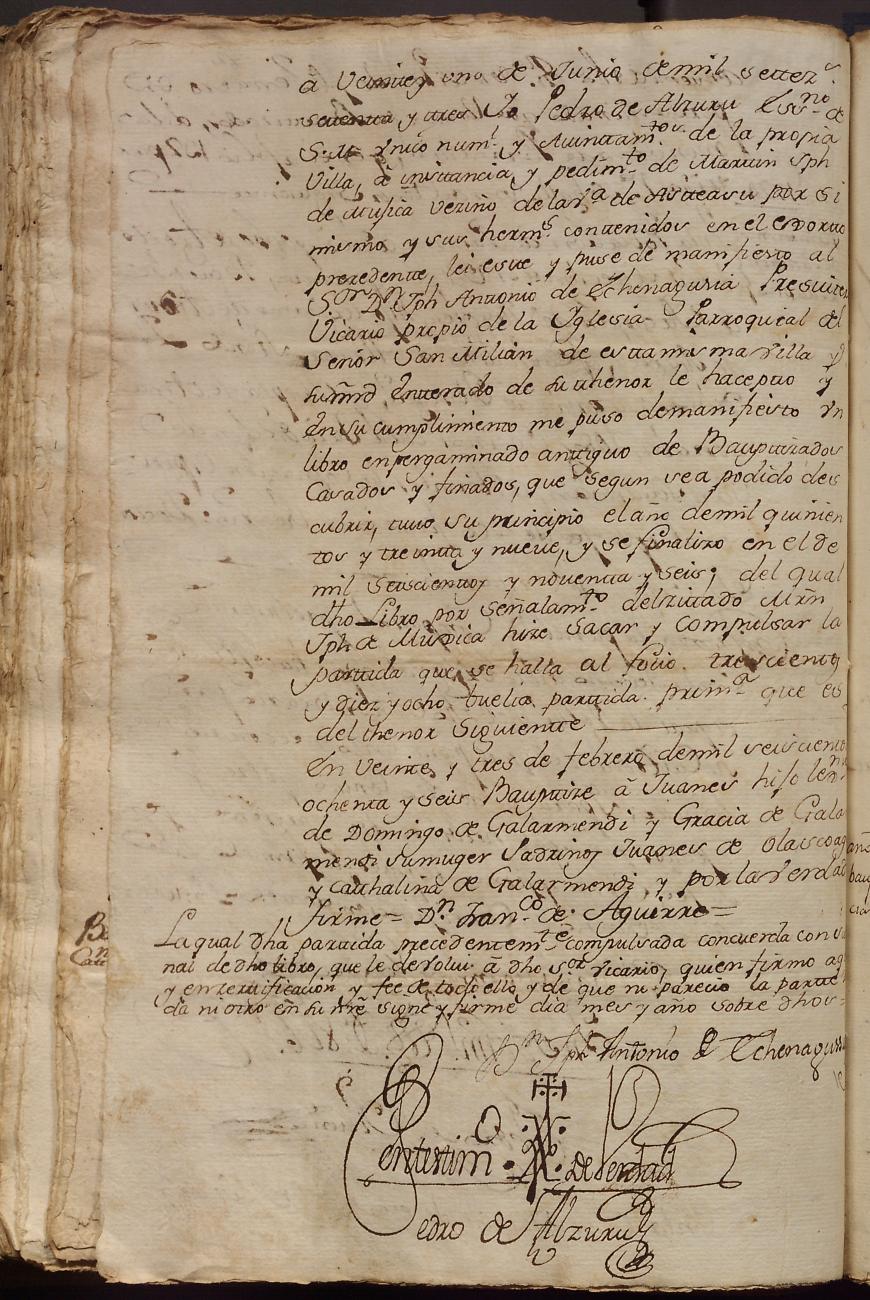 a Veintey uno de Junio, de mil settez.s
setenta y tres Yo Pedro de Alzuru Ess.no de
S.M. Vnico num.l y Aiuntam.tos de la propia
Villa, â instancia y pedim.to de Martin Jph
de Mugica vezino de la V.a de Asteasu por si
mismo y sus herm.s contenidos en el exorto
prezedente, lei este y puse de manifiesto al
S.or D.n Jph Antonio de Echenagusia Presuitero
Vicario propio de la Yglesia Parroquial del
Señor San Milian de esta misma villa y
su mrd Enterado de su thenor le hacepto y
En su cumplimiento me puso demanifiesto Vn
libro enpergaminado antiguo de Bauptizados
Casados y finados, que segun sea podido des
cubrir, tuuo su principio el año demil quinien
tos y treinta y nueue, y se finalizo en el de
mil seiscientos y nouenta y seis; del qual
dho Libro por señalam.to delzittado Mrn
Jph de Mugica hize Sacar y compulsar la
partida que se halla al folio trescientos
y diez y ocho buelta partida prim.a que es
del thenor Siguiente
En veinte y tres de febrero demil seiscientos
ochenta y seis Bauptize â Juanes hijo len.mo
de Domingo de Galarmendi y Gracia de Galar
mendi sumuger Padrinos Juanes de Olascoag
y Cathalina de Galarmendi y por la verdad
firme = D.n Fran.co de Aguirre =
La qual dha partida precedentem.te compulsada concuerda con su
nal de dho libro, que le devolui â dho s.or vicario, quien firmo aq
y en zertificacion y fee de todo ello, y de que no parecio la parti
da ni otro en su nre signe y firme dia mes y año sobre dhos =
D.n Jph Antonio de Echenagusia
En testim.o de verdad
Pedro de Alzuru